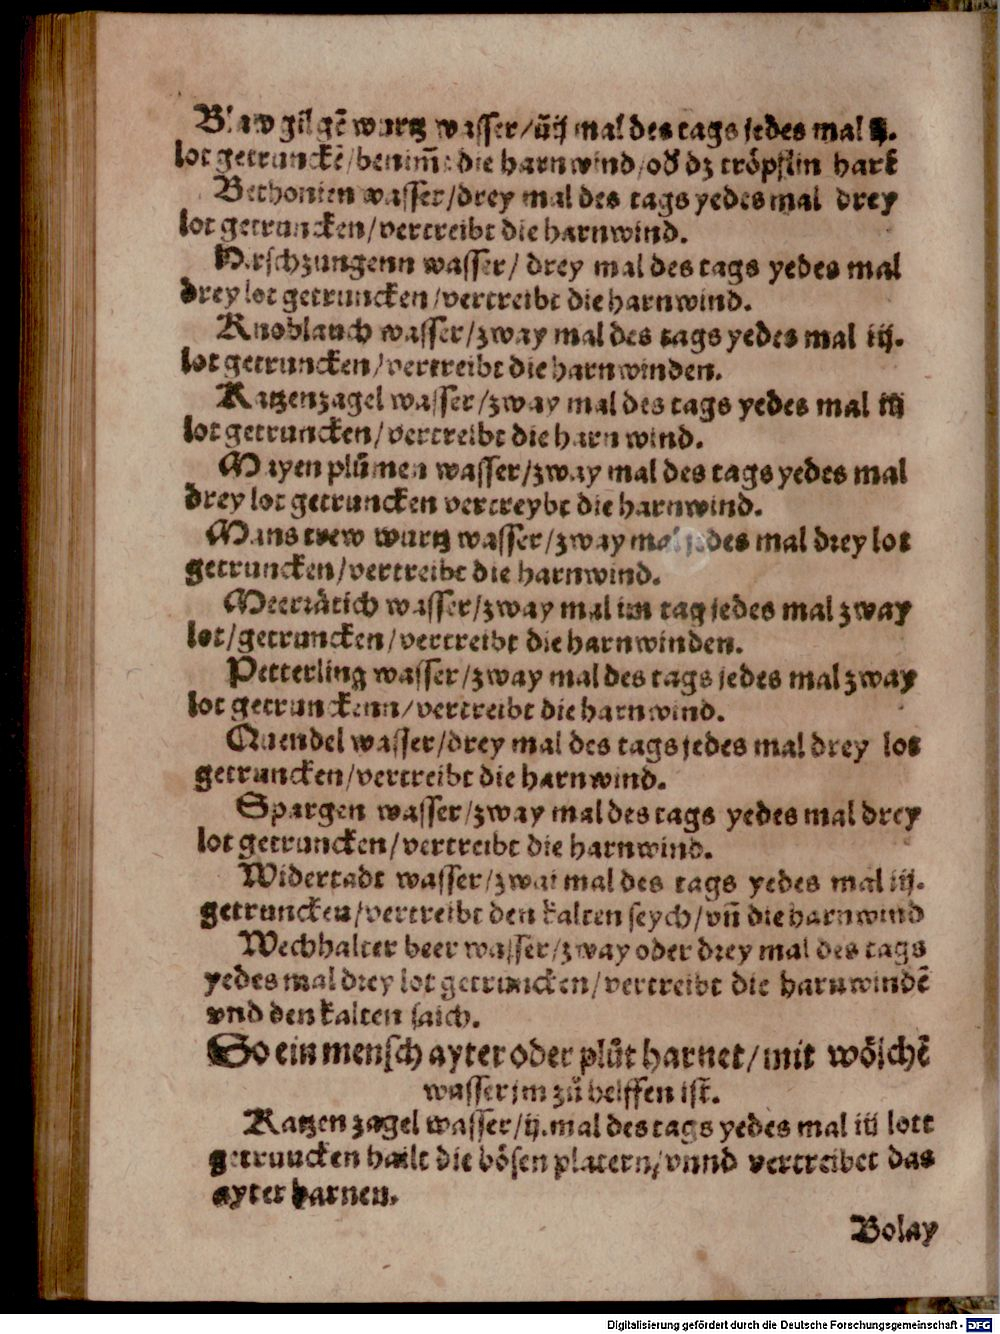 Blaw gilgē wurtz wasser/ iij mal des tags jedes mal
lot getrunckē/benim̄t die harnwind/od dz tröpflin harē
Bethonien wasser/drey mal des tags yedes mal drey
lot getruncken/vertreibt die harnwind.
Hirschzungenn wasser/ drey mal des tags yedes mal
drey lot getruncken/vertreibt die harnwind.
Knoblauch wasser/zway mal des tags yedes mal iij.
lot getruncken/vertreibt die harnwinden.
Katzenzagel wasser/zway mal des tags yedes mal iij
lot getruncken/vertreibt die harn wind.
Mayen plůmen wasser/zway mal des tags yedes mal
drey lot getruncken vertreybt die harnwind.
Mans trew wurtz wasser/zway mal jedes mal drey lot
getruncken/vertreibt die harnwind.
Meerrätich wasser/zway mal im tag jedes mal zway
lot/getruncken/vertreibt die harnwinden.
Petterling wasser/zway mal des tags jedes mal zway
lot getrunckenn/vertreibt die harnwind.
Quendel wasser/drey mal des tags jedes mal drey lot
getruncken/vertreibt die harnwind.
Spargen wasser/zway mal des tags yedes mal drey
lot getruncken/vertreibt die harnwind.
Widertadt wasser/zwai mal des tags yedes mal iij.
getruncken/vertreibt den kalten seych/vn̄ die harnwind
Wechhalter beer wasser/zway oder drey mal des tags
yedes mal drey lot getruncken/vertreibt die harnwindē
vnd den kalten saich.
So ein mensch ayter oder plůt harnet/mit wölchē
wasser jm zů helffen ist.
Katzen zagel wasser/ij.mal des tags yedes mal iij lott
getruncken hailt die bösen platern/vnnd vertreibet das
ayter harnen.
Bolay
Digitalisierung gefördert durch die Deutsche Forschungsgemeinschaft - DFG